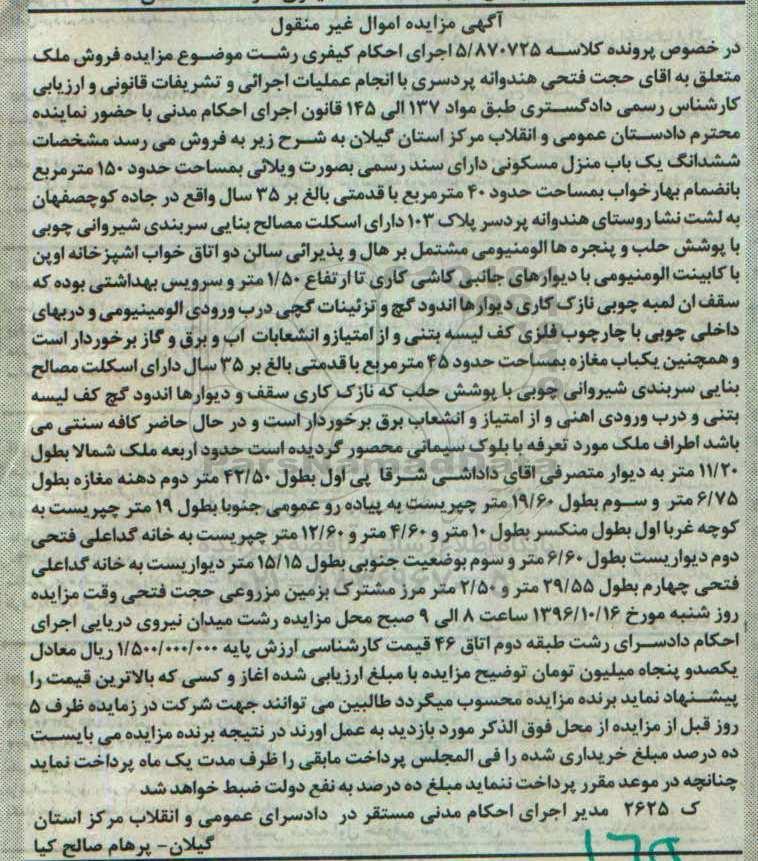 آگهی مزایده اموال غیر منقول
در خصوص پرونده کلاسه ۵/۸۷۰۷۲۵ اجرای احکام کیفری رشت موضوع مزایده فروش ملک
متعلق به اقای حجت فتحی هندوانه پردسری با انجام عملیات اجرائی و تشریفات قانونی و ارزیابی
کارشناس رسمی دادگستری طبق مواد ۱۳۷ الی ۱۴۵ قانون اجرای احکام مدنی با حضور نماینده
محترم دادستان عمومی و انقلاب مرکز استان گیلان به شرح زیر به فروش می رسد مشخصات
ششدانگ یک باب منزل مسکونی دارای سند رسمی بصورت ویلائی بمساحت حدود ۱۵۰ مترمربع
بانضمام بهارخواب بمساحت حدود ۴۰ مترمربع با قدمتی بالغ بر ۳۵ سال واقع در جاده کوچصفهان
به لشت نشا روستای هندوانه پردسر پلاک ۱۰۳ دارای اسکلت مصالح بنایی سربندی شیروانی چوبی
با پوشش حلب و پنجره ها الومنیومی مشتمل بر هال و پذیرائی سالن دو اتاق خواب اشپزخانه اوپن
با کابینت الومنیومی با دیوارهای جانبی کاشی کاری تا ارتفاع ۱/۵۰ متر و سرویس بهداشتی بوده که
سقف ان لمبه چوبی نازک کاری دیوارها اندود گچ و تزئینات گچی درب ورودی الومینیومی و دربهای
داخلی چوبی با چارچوب فلزی کف لیسه بتنی و از امتیازو انشعابات اب و برق و گاز برخوردار است
و همچنین یکباب مغازه بمساحت حدود ۴۵ مترمربع با قدمتی بالغ بر ۳۵ سال دارای اسکلت مصالح
بنایی سربندی شیروانی چوبی با پوشش حلب که نازک کاری سقف و دیوارها اندود گچ کف لیسه
بتنی و درب ورودی اهنی و از امتیاز و انشعاب برق برخوردار است و در حال حاضر کافه سنتی می
باشد اطراف ملک مورد تعرفه با بلوک سیمانی محصور گردیده است حدود اربعه ملک شمالا بطول
۱۱/۲۰ متر به دیوار متصرفی اقای داداشی شرقا پی اول بطول ۴۲/۵۰ متر دوم دهنه مغازه بطول
۶/۷۵ متر و سوم بطول ۱۹/۶۰ متر چپریست به پیاده رو عمومی جنوبا بطول ۱۹ متر چپریست به
کوچه غربا اول بطول منکسر بطول ۱۰ متر و ۴/۶۰ متر و ۱۲/۶۰ متر چپریست به خانه گداعلی فتحی
دوم دیواریست بطول ۶/۶۰ متر و سوم بوضعیت جنوبی بطول ۱۵/۱۵ متر دیواریست به خانه گداعلی
فتحی چهارم بطول ۲۹/۵۵ متر و ۲/۵۰ متر مرز مشترک بزمین مزروعی حجت فتحی وقت مزایده
روز شنبه مورخ ۱۳۹۶/۱۰/۱۶ ساعت ۸ الی ۹ صبح محل مزایده رشت میدان نیروی دریایی اجرای
احکام دادسرای رشت طبقه دوم اتاق ۴۶ قیمت کارشناسی ارزش پایه ۱/۵۰۰/۰۰۰/۰۰۰ ریال معادل
یکصدو پنجاه میلیون تومان توضیح مزایده با مبلغ ارزیابی شده اغاز و کسی که بالاترین قیمت را
پیشنهاد نماید برنده مزایده محسوب میگردد طالبین می توانند جهت شرکت در زمایده ظرف ۵
روز قبل از مزایده از محل فوق الذکر مورد بازدید به عمل اورند در نتیجه برنده مزایده می بایست
ده درصد مبلغ خریداری شده را فی المجلس پرداخت مابقی را ظرف مدت یک ماه پرداخت نماید
چنانچه در موعد مقرر پرداخت ننماید مبلغ ده درصد به نفع دولت ضبط خواهد شد
ک ۲۶۲۵ مدیر اجرای احکام مدنی مستقر در دادسرای عمومی و انقلاب مرکز استان
گیلان- پرهام صالح کیا